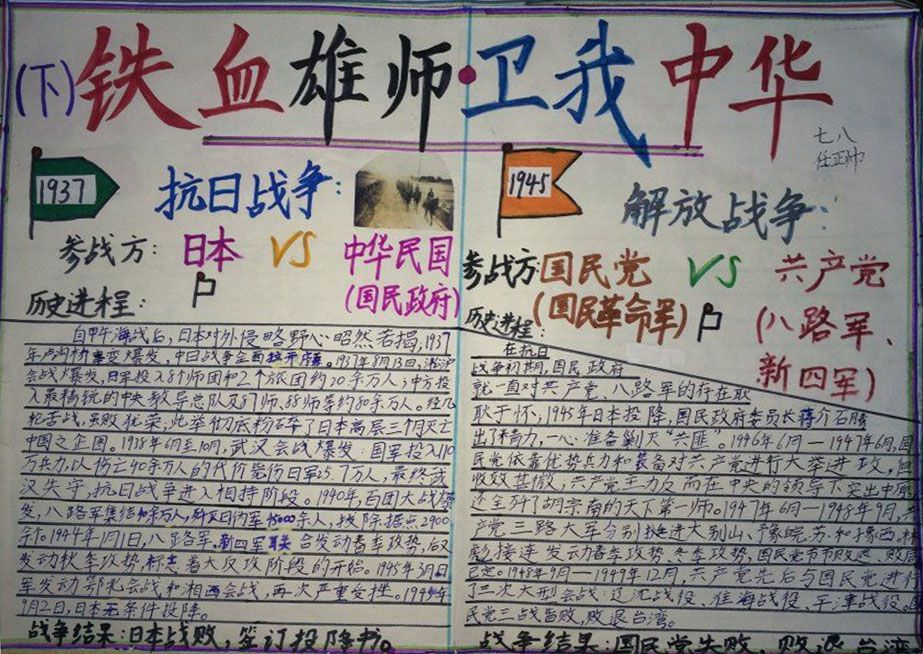 (下)铁血雄师·卫我中华
七八
任正帅
1937
抗日战争:
参战方: 日本 VS 中华民国
(国民政府)
历史进程:
自甲午海战后,日本对外侵略野心昭然若揭,1937
年卢沟桥事变爆发,中日战争全面拉开序幕。1937年8月13日,淞沪
会战爆发,日军投入8个师团和2个旅团约20余万人;中方投
入最精锐的中央教导总队及87师、88师等约80余万人。经几
轮苦战,虽败犹荣,此举彻底粉碎了日本高层三个月灭亡
中国之企图。1938年6月至10月,武汉会战爆发:国军投入110
万兵力,以伤亡40余万人的代价毙伤日军25.7万人,最终武
汉失守,抗日战争进入相持阶段。1940年,百团大战爆
发,八路军集结40余万人,歼灭日伪军45000余人,拔除据点2900
余个。1944年1月1日,八路军、新四军联合发动春季攻势,后又
发动秋季攻势,标志着大反攻阶段的开始。1945年3月日
军发动鄂北会战和湘西会战,再次严重受挫。
9月2日,日本无条件投降。
战争结果:日本战败,签订投降书。
1945
解放战争:
参战方:国民党 VS 共产党
(国民革命军) (八路军、
新四军)
历史进程:
在抗日
战争初期,国民政府
就一直对共产党、八路军的存在耿
耿于怀,1945年日本投降,国民政府委员长蒋介石腾
出了精力,一心准备剿灭“共匪”。1946年6月—1947年6月,国
民党依靠优势兵力和装备对共产党进行大举进攻,但
收效甚微,共产党主力反而在中央的领导下突出中原
还全歼了胡宗南的天下第一师。1947年6月—1948年9月,共
产党三路大军分别挺进大别山、豫皖苏和豫西,林
彪接连发动春季攻势、冬季攻势,国民党节节败退,败局
已定。1948年9月—1949年12月,共产党先后与国民党进行
了三次大型会战:辽沈战役、淮海战役、平津战役。
民党三战皆败,败退台湾。
战争结果:国民党失败,败退台湾